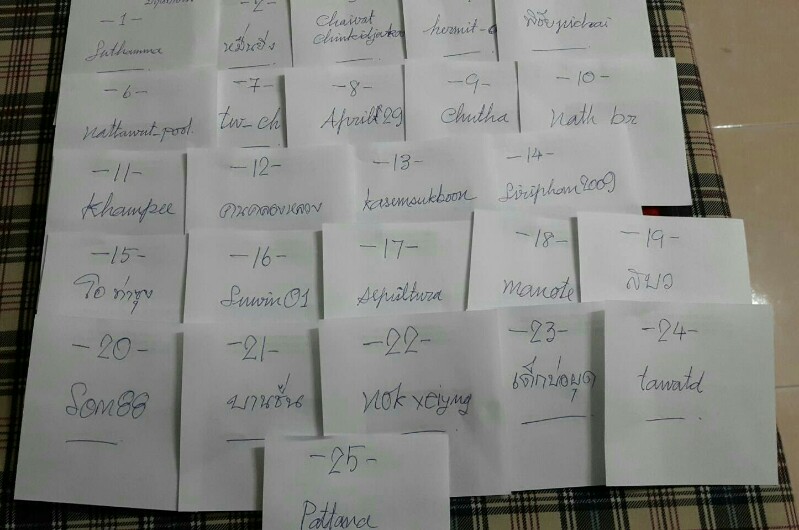 -1-
Suthamma
-2-
หมื่นยิ่ง
Chaivat
hermit-
-6-
nattawat_pool.
-7-
tw_ch
-8-
April 29
-9-
Chutha
-10-
Nath br
-11-
Khampee
-12-
คนคลองหลวง
-13-
Kasemsukboon
-14-
Siriphan2009
-15-
โอ ท่าซุง
-16-
Suwin01
-17-
Sepultura
-18-
manote
-19-
สิบว
-20-
Som88
-21-
บานชื่น
-22-
Nok xeiyng
-23-
เด็กบ่อผุด
-24-
tawatd
-25-
Pattana